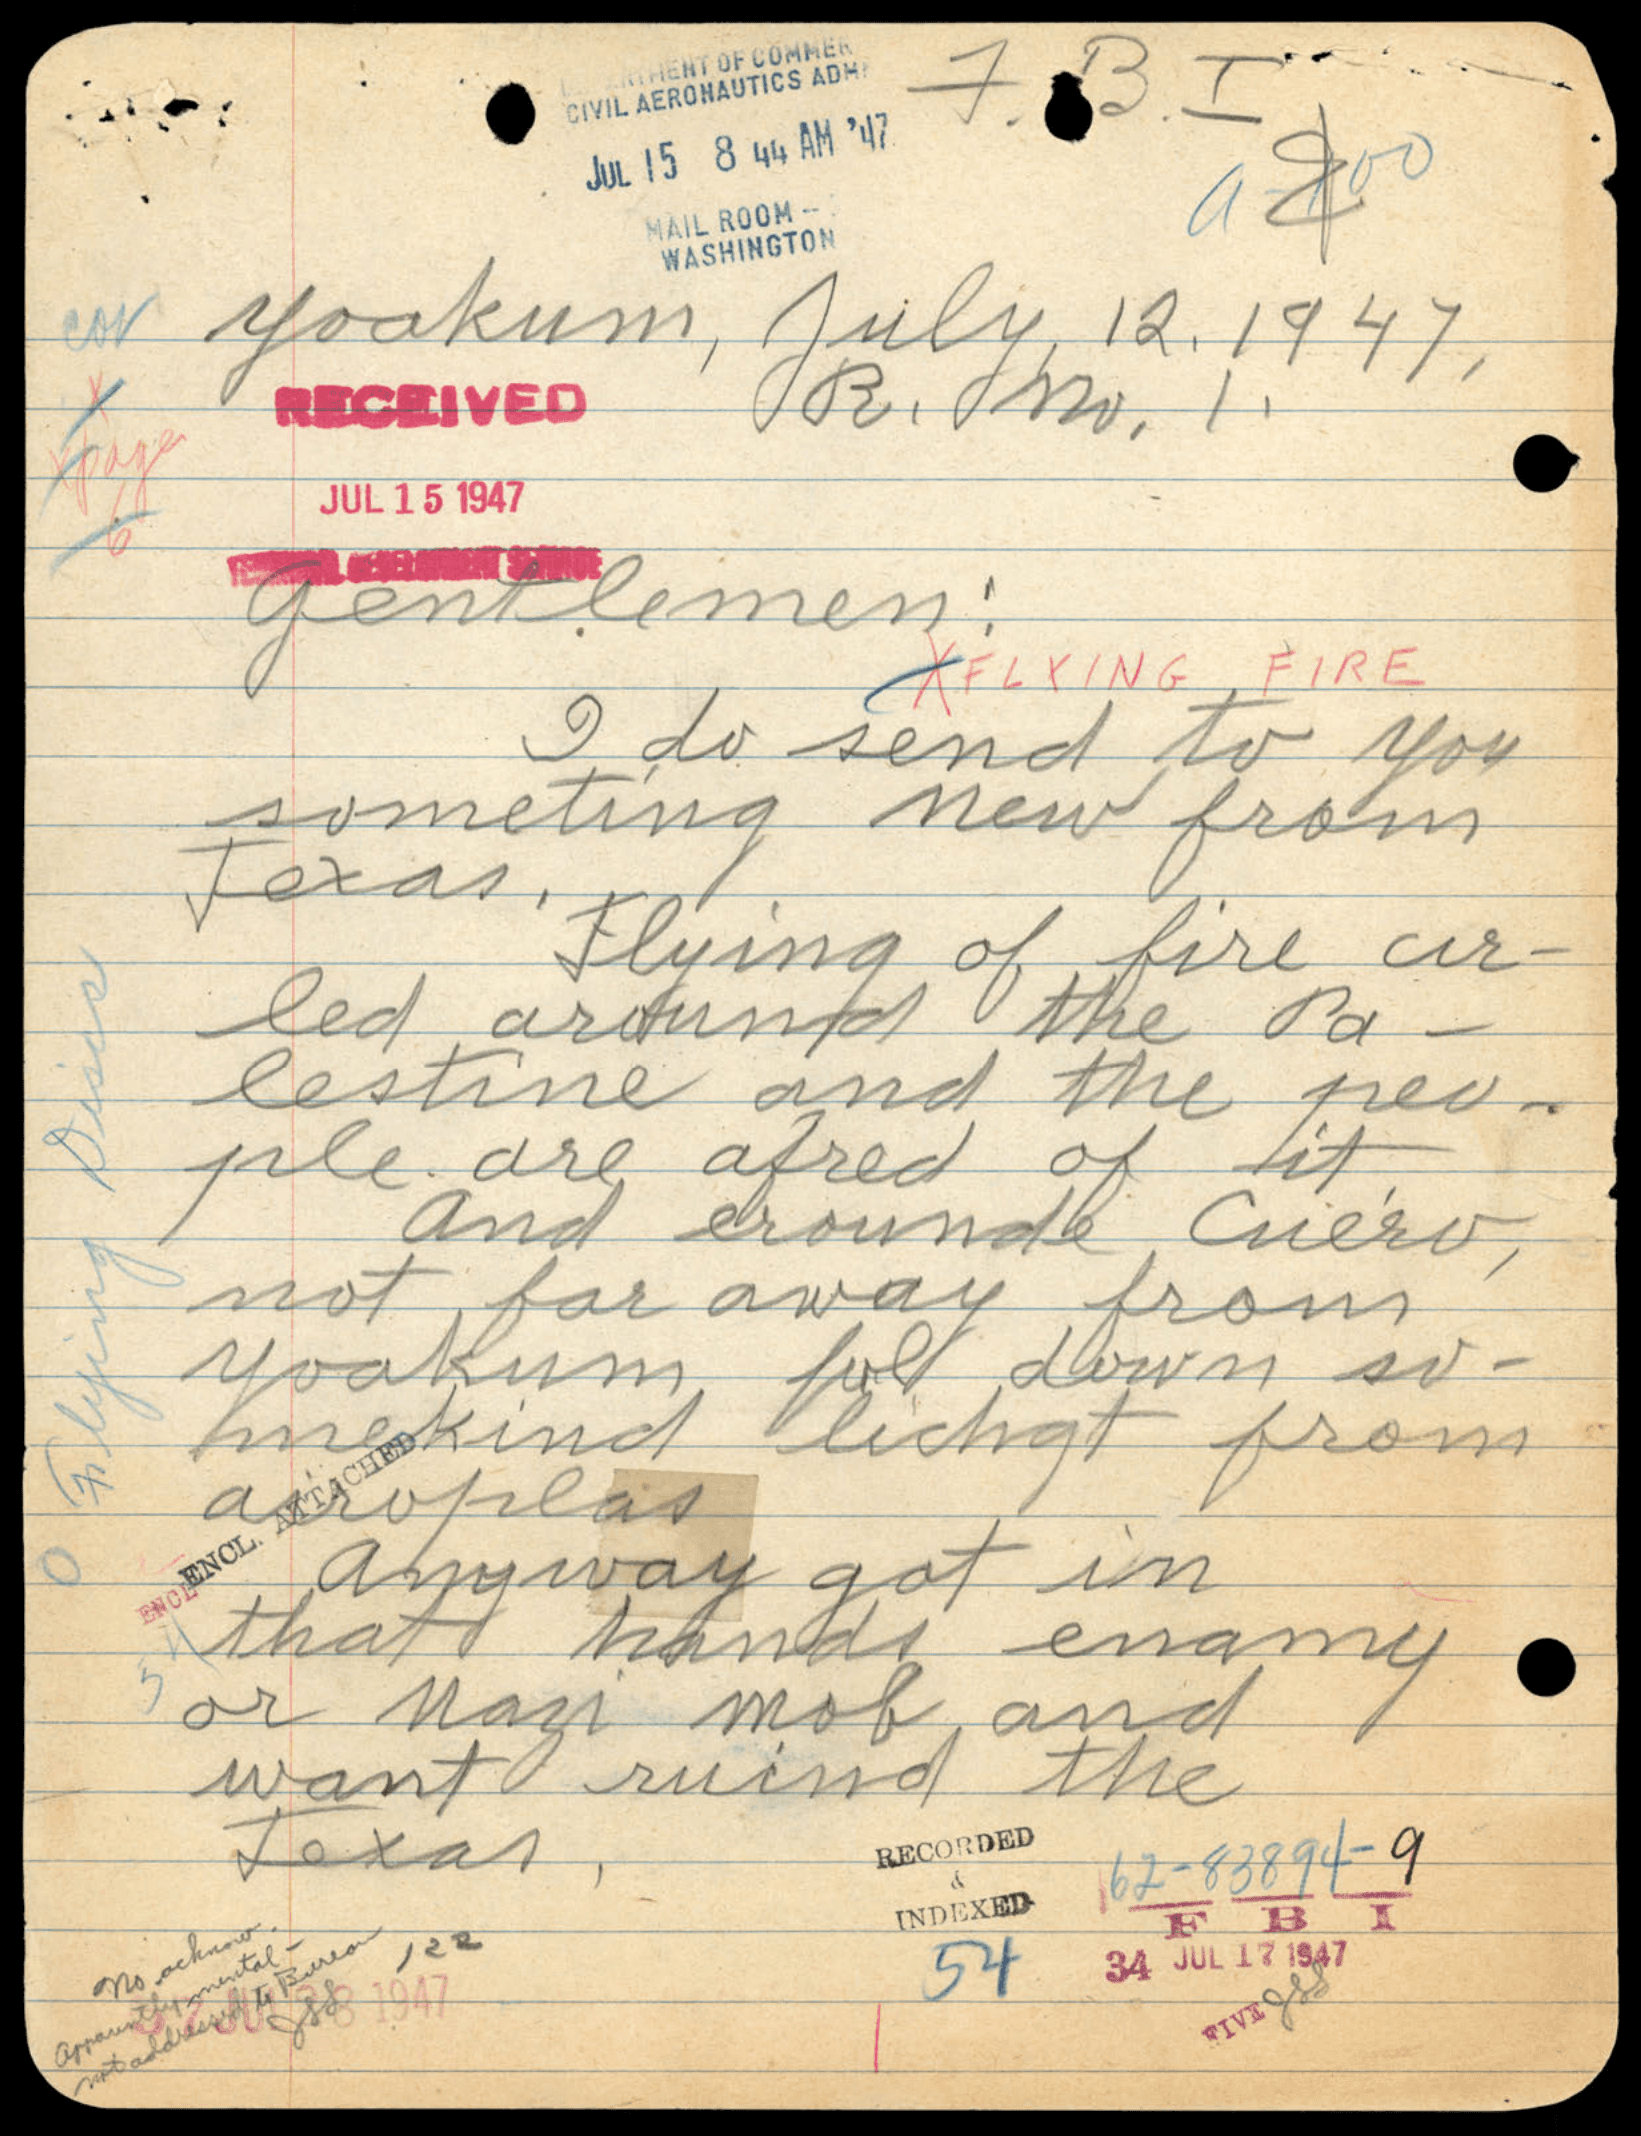 DEPARTMENT OF COMMER
CIVIL AERONAUTICS ADM
JUL 15 8 44 AM '47
MAIL ROOM -
WASHINGTON
F. B. I
Yoakum, July, 12. 1947,
R. No. 1.
RECEIVED
JUL 15 1947
page
6
Gentlemen:
X FLYING FIRE
I do send to you
someting New from
Texas,
Flying of fire cir-
led around the Pa-
lestine and the peo-
ple are afred of it
And erounde Cuero,
not far away from
Yoakum fol down so-
mekind lichgt from
airoplas
Anyway got in
that hands enamy
or Nazi mob and
want ruind the
Texas,
Flying Discs
ENCL. ATTACHED
ENCL
RECORDED
&
INDEXED
54
62-83894-9
F B I
34 JUL 17 1947
FIVE
JSS
No acknow.
Apparently mental -
not addressed to Bureau
JSS
122
1947